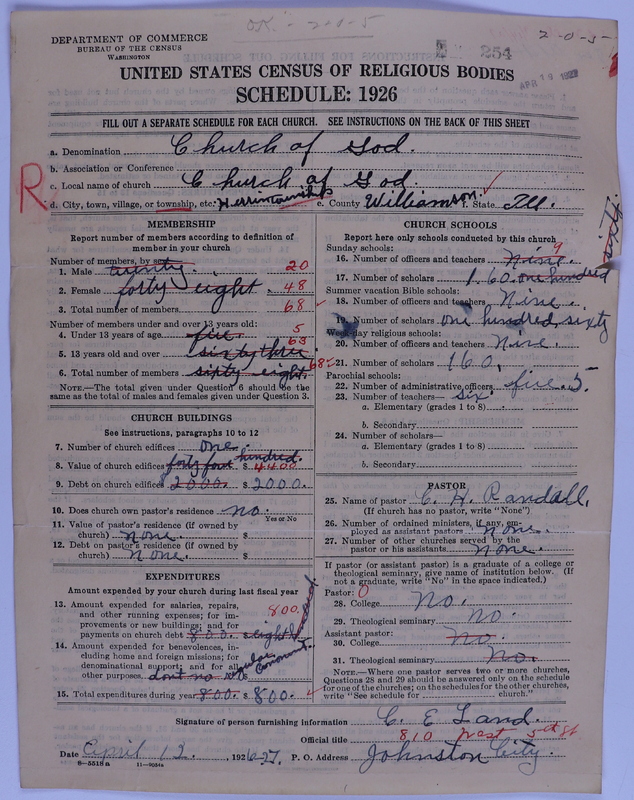 O.K. - 2-0-5
2-0-5-
DEPARTMENT OF COMMERCE
BUREAU OF THE CENSUS
WASHINGTON
254
APR 19
UNITED STATES CENSUS OF RELIGIOUS BODIES
SCHEDULE: 1926
FILL OUT A SEPARATE SCHEDULE FOR EACH CHURCH. SEE INSTRUCTIONS ON THE BACK OF THIS SHEET
a. Denomination Church of God.
b. Association or Conference
c. Local name of church Church of God.
R
d. City, town, village, or township, etc. Herrin township e. County Williamson f. State Ill.
MEMBERSHIP
Report number of members according to definition of member in your church
Number of members, by sex:
1. Male 20
2. Female forty eight 48
3. Total number of members 68
Number of members under and over 13 years old:
4. Under 13 years of age five 5
5. 13 years old and over sixty three 63
6. Total number of members sixty eight 68
NOTE.—The total given under Question 6 should be the
same as the total of males and females given under Question 3.
CHURCH BUILDINGS
See instructions, paragraphs 10 to 12
7. Number of church edifices one.
8. Value of church edifices forty four hundred. $ 4400
9. Debt on church edifices 2000. $ 2000.
10. Does church own pastor's residence no.
Yes or No
11. Value of pastor's residence (if owned by
church) none. $
12. Debt on pastor's residence (if owned by
church) none. $
EXPENDITURES
Amount expended by your church during last fiscal year
13. Amount expended for salaries, repairs,
and other running expenses; for im-
provements or new buildings; and for
payments on church debt 800. $ eight hundred 800.
14. Amount expended for benevolences, in-
cluding home and foreign missions; for
denominational support; and for all
other purposes dont no
15. Total expenditures during year 800. $ 800.
CHURCH SCHOOLS
Report here only schools conducted by this church
Sunday schools:
16. Number of officers and teachers Nine. 9
17. Number of scholars 160. one hundred
Summer vacation Bible schools:
18. Number of officers and teachers Nine.
19. Number of scholars one hundred sixty
Week-day religious schools:
20. Number of officers and teachers Nine.
21. Number of scholars 160.
Parochial schools:
22. Number of administrative officers five 5.
23. Number of teachers— six.
a. Elementary (grades 1 to 8)
b. Secondary
24. Number of scholars—
a. Elementary (grades 1 to 8)
b. Secondary
PASTOR
25. Name of pastor C. H. Randall,
(If church has no pastor, write "None")
26. Number of ordained ministers, if any, em-
ployed as assistant pastors none.
27. Number of other churches served by the
pastor or his assistants none.
If pastor (or assistant pastor) is a graduate of a college or
theological seminary, give name of institution below. (If
not a graduate, write "No" in the space indicated.)
Pastor: 0
28. College No.
29. Theological seminary No.
Assistant pastor:
30. College No.
31. Theological seminary No.
NOTE.—Where one pastor serves two or more churches,
Questions 28 and 29 should be answered only on the schedule
for one of the churches; on the schedules for the other churches,
write "See schedule for church."
Signature of person furnishing information C. E. Land.
Official title 810 West 5th st
Date April 12, 1926-27. P. O. Address Johnston City.
8—5518 a 11—9034a